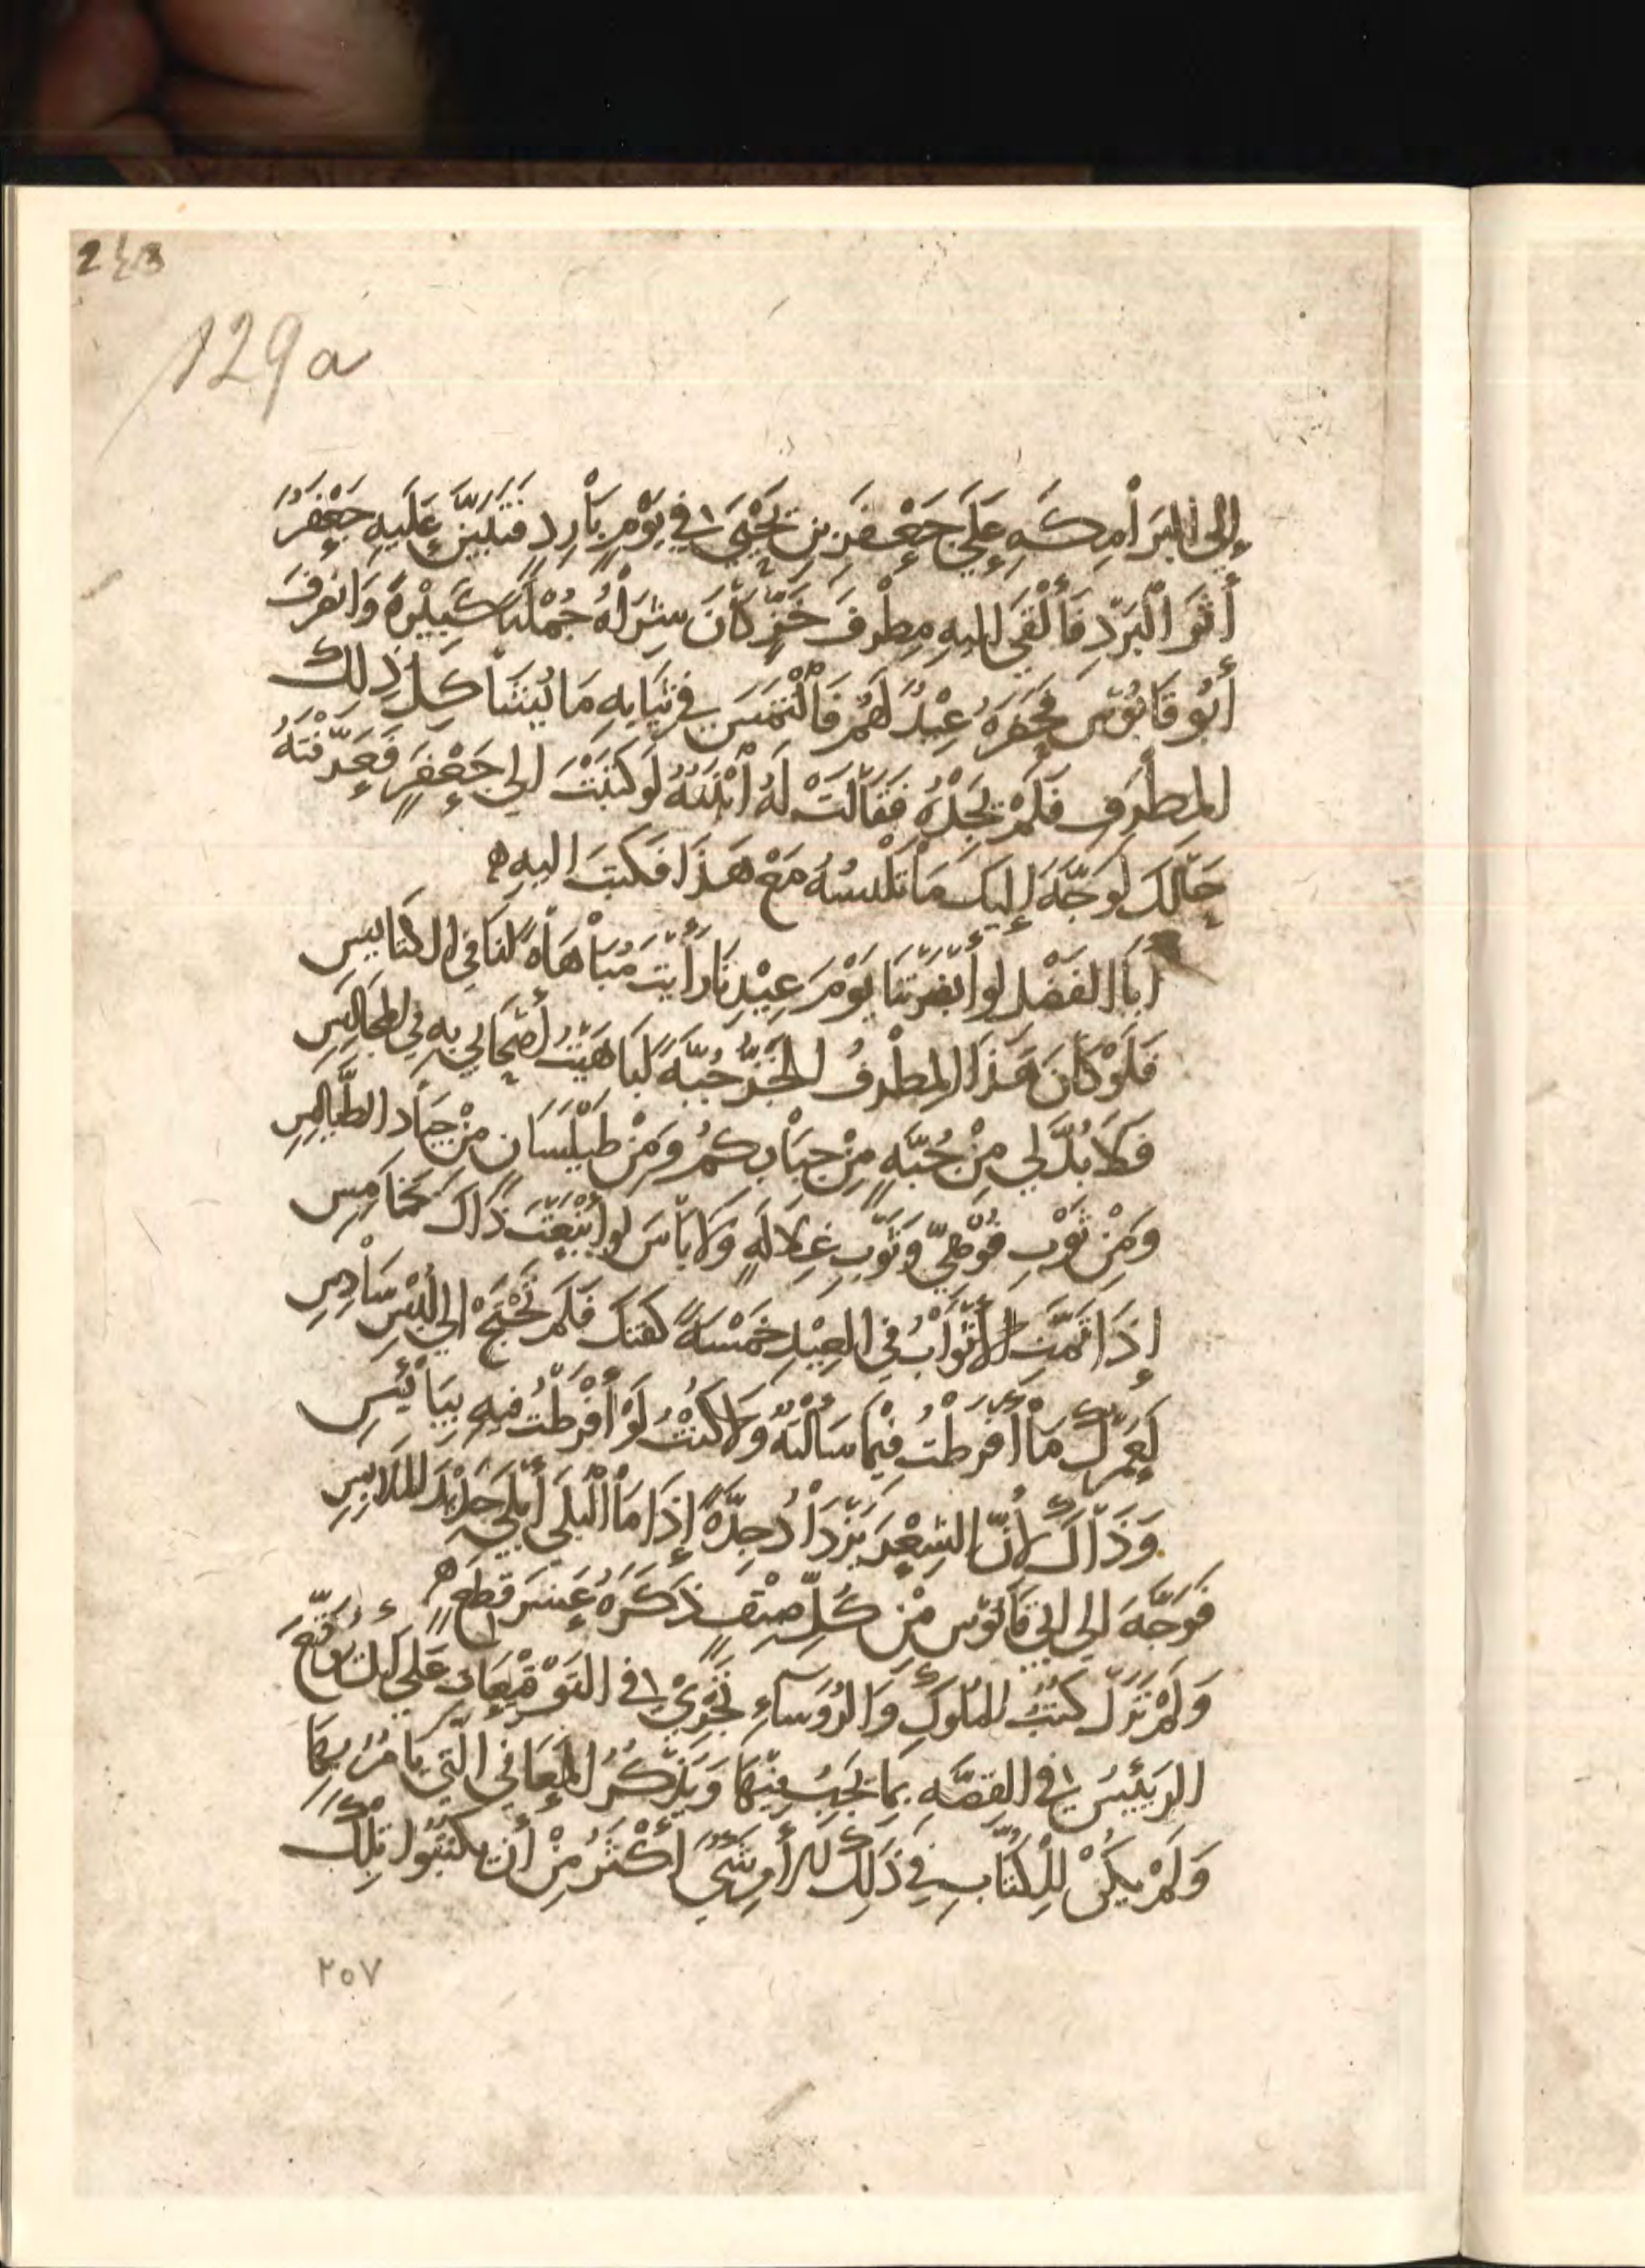 243
129a
إِلَى البَرَامِكَهِ عَلَى جَعْفَرَ بنِ يَحْيَى فِي يَوْمٍ بَارِدٍ فَتَبَيَّنَ عَلَيهِ جَعْفَرُ
أَثَرَ الْبَرْدِ فَأَلْقَى إليهِ مِطْرَفَ خَزٍّ كَانَ شِرَاهُ جُمْلَةً كَبِيْرَةً وَانصَرَفَ
أَبُو قَابُوْسَ فَحَضَرَهُ عِيْدٌ لَهُمْ فَالْتَمَسَ فِي ثِيَابِهِ مَا يُشَاكِلُ ذلِكَ
المِطْرَفِ فَلَمْ يَجِدْهُ فَقَالَتْ لَهُ ابْنَتُهُ لَوكَتَبْتَ الى جَعْفَرٍ فَعَرَّفْتَهُ
حَالَكَ لَوَجَّهَ إِلَيكَ مَا تَلْبسُهُ مَعْ هَذَا فَكَتَبَ اليهِ ه
أَبَا الفَضْلِ لو أَبْصَرْتَنَا يَوْمَ عِيْدِنَا رَأَيْتَ مُبَاهَاةً لَنَا فِي الكَنَايسِ
فَلَوْ كَانَ هَذَا المِطْرَفُ الخَزُّ جُبَّةً لَبَاهَيْتُ أَصْحَابِي بِهِ فِي المَجَالِسِ
فَلَا بُدَّ لِي مِنْ جُبَّهٍ مِنْ جِبَابِكُمُ وَمِنْ طَيْلَسَانٍ مِنْ جِيَادِ الطَّيَالِسِ
وَمِنْ ثَوْبِ قُوْهِيٍّ وَثَوْبِ غِلَالَهٍ وَلَا بَاسَ لو أَتْبَعْتَ ذَاكَ بخَامِسِ
إِذَا تَمَّتِ الأَثْوَابُ فِي العِيْدِ خَمْسَةً كَفَتْكَ فَلَمْ تَحْتَجْ الى لُبْسِ سَادِسِ
لَعَمْرُكَ مَا أَفْرَطْتُ فِيْمَا سَأَلْتُهُ وَلَا كُنْتُ لَوْ أَفْرَطْتُ فِيهِ بِيَائِسِ
وَذَاكَ لِأَنَّ الشِعْرَ يَزْدَادُ جِدَّةً إِذَا مَا الْبِلَى أَبْلَى جَدْيدَ المَلَابِسِ
فَوَجَّهَ الى ابِي قَابُوْسَ مِنْ كُلِّ صِنْفٍ ذَكَرَهُ عَشَرَ قِطَعٍ ه
وَلَمْ تَزَلْ كُتُبُ المُلُوكِ وَالرُؤَسَاءِ تَجْرِيْ فِي التَوْقِيْعَاتِ عَلَى أَنْ يُوَقِّعَ
الرَئِيْسُ فِي القِصَّهِ بِمَا يَجِبُ مِنْهَا وَيَذْكُرُ المَعَانِي الَّتِي يَامُرُ بِهَا
وَلَمْ يَكُنْ لِلْكُتَّابِ فِي ذَلِكَ الأَمرِ شَيٌ أَكْثَرُ مِنْ أَنْ يَكْتبُوا تِلْكَ
٢٥٧